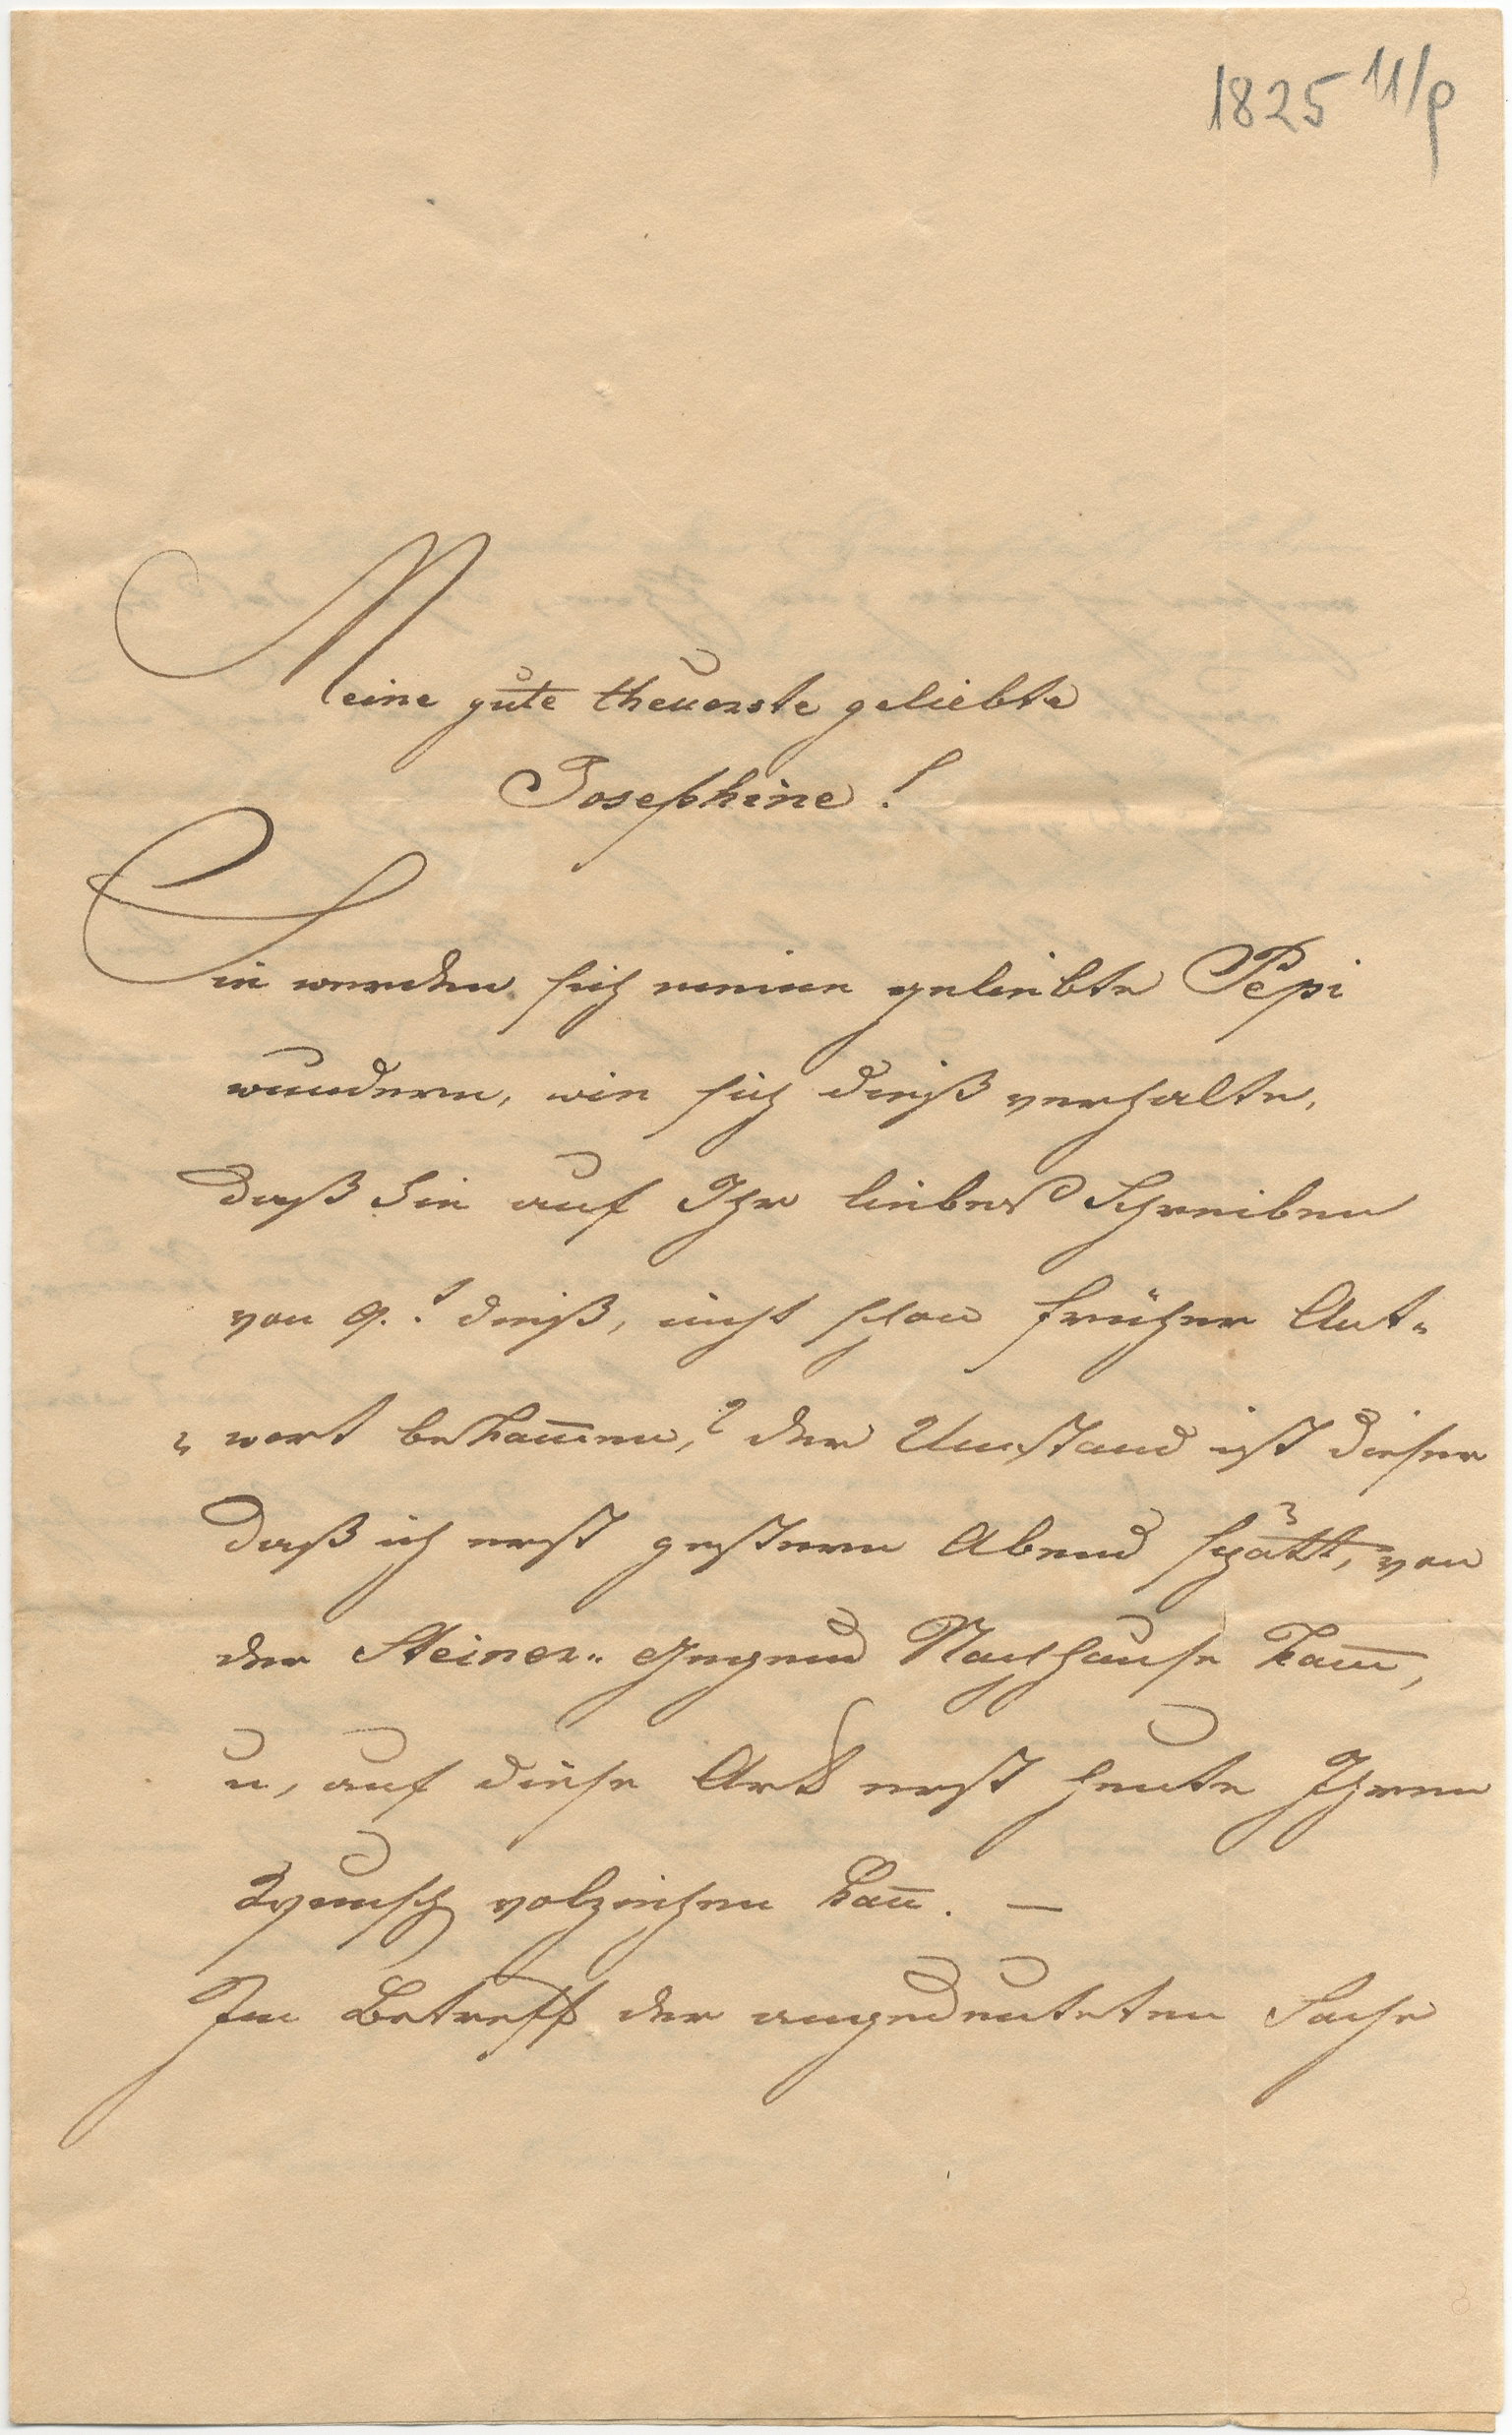 1825 11/9
Meine gute theuerste geliebte
Josephine!
Sie werden sich meine geliebte Pepi
wundern, wie sich dieß verhalte,
daß Sie auf Ihr liebes Schreiben
von 9.t dieß, nicht schon früher Ant=
=wort bekam̅en,? der Umstand ist dieser
daß ich erst gestern Abend spätt, von
der Steiner= Gegend Nachhause kam̅,
u, auf diese Art erst heute Ihren
Wunsch volziehen kan̅. —
Im Betreff der angedeuteten Sache